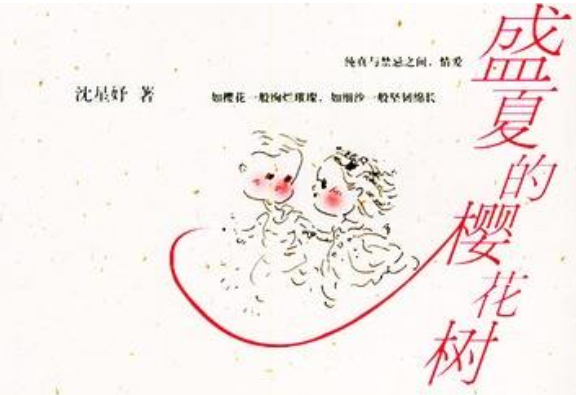 盛夏的樱花树
纯真与禁忌之间，情爱
如樱花一般绚烂璀璨，如细沙一般坚韧绵长
沈星妤 著